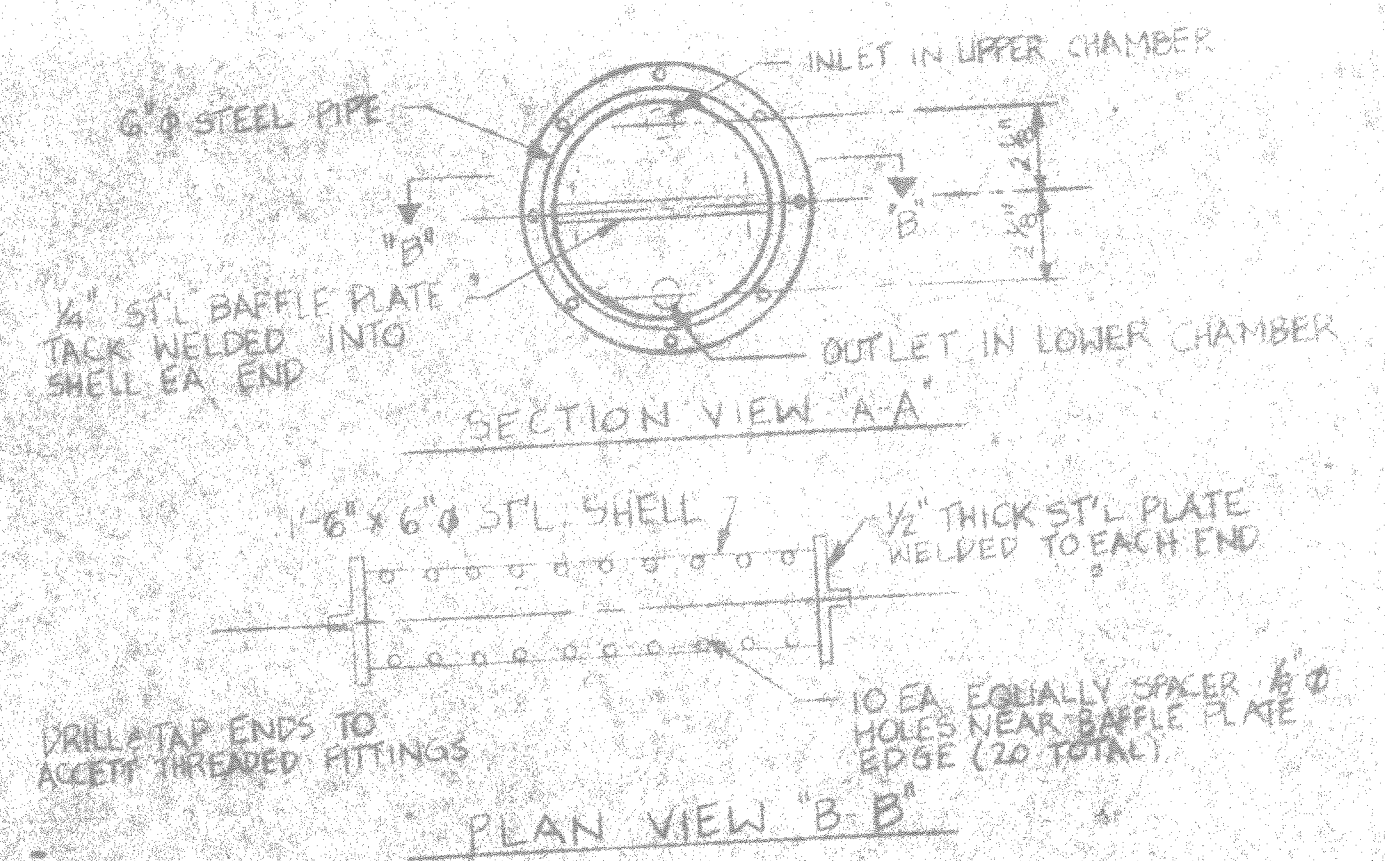 INLET IN UPPER CHAMBER
6"⌀ STEEL PIPE
2 ⅛"
"B"
"B"
2 ⅛"
¼" ST'L BAFFLE PLATE
TACK WELDED INTO
SHELL EA END
OUTLET IN LOWER CHAMBER
SECTION VIEW "A-A"
1'-6" x 6"⌀ ST'L. SHELL
½" THICK ST'L PLATE
WELDED TO EACH END
10 EA EQUALLY SPACER ⌀
HOLES NEAR BAFFLE PLATE
EDGE (20 TOTAL)
DRILL & TAP ENDS TO
ACCEPT THREADED FITTINGS
PLAN VIEW "B-B"